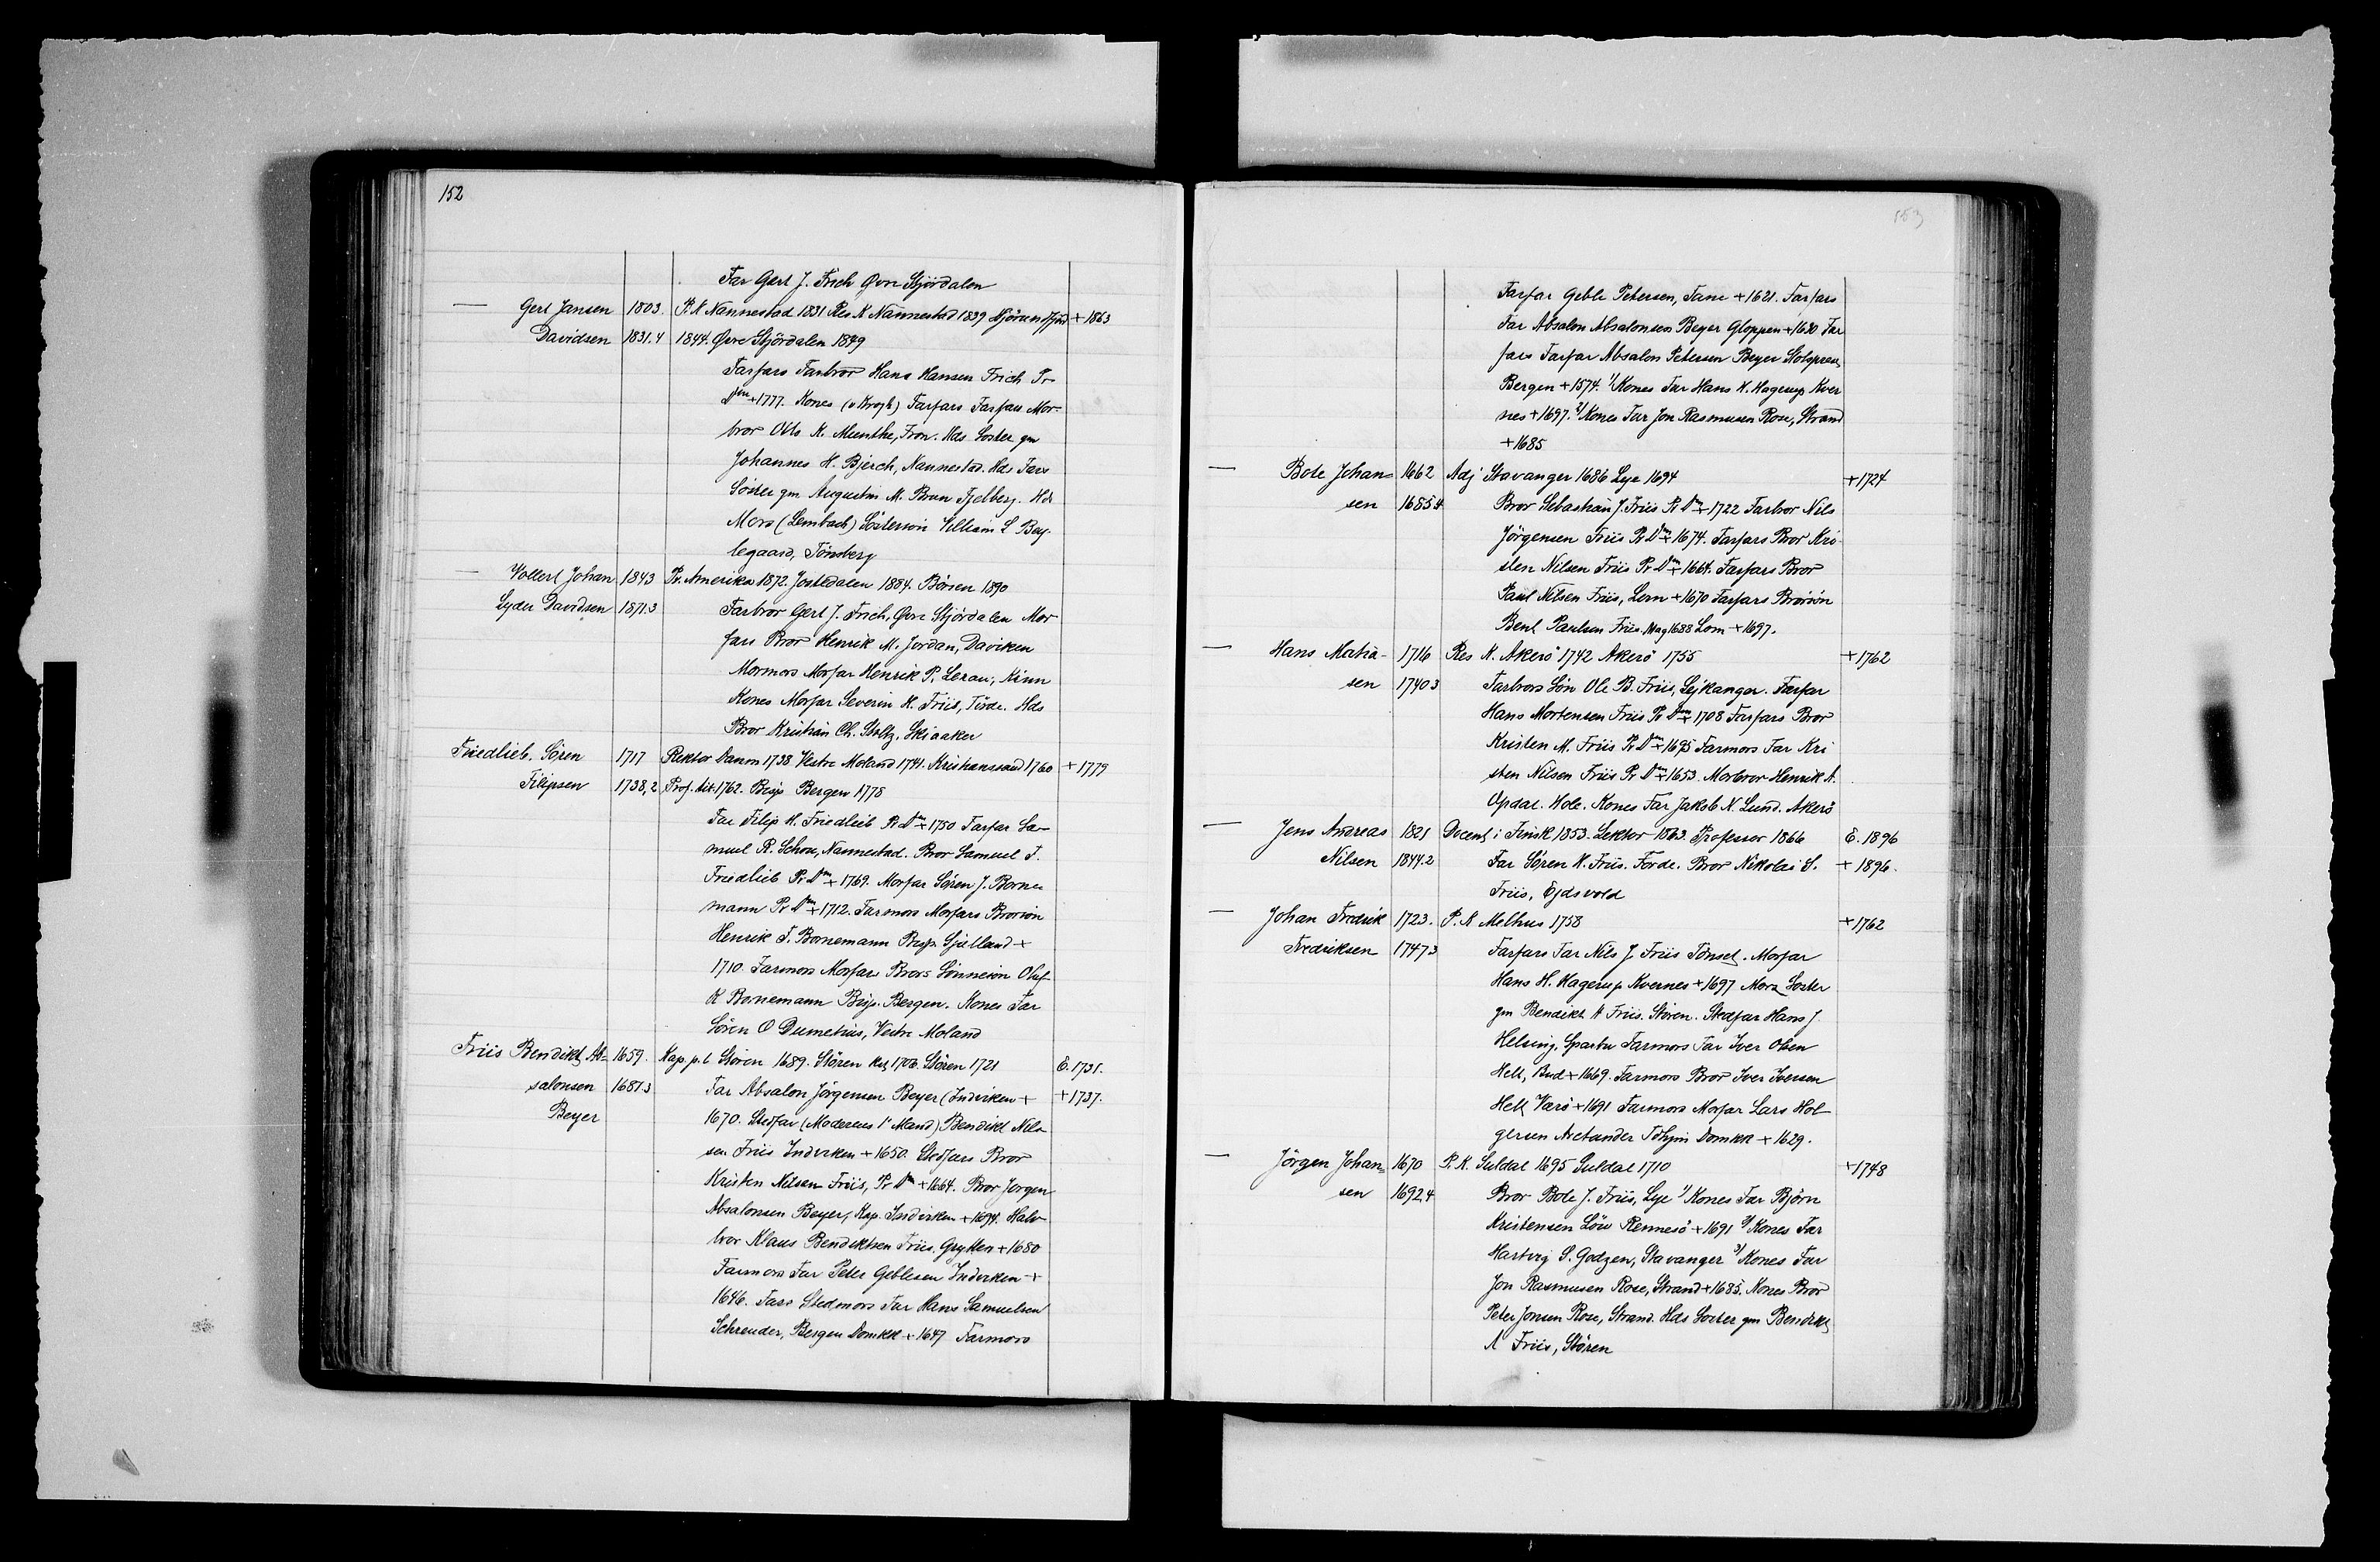 152
Far Gert J. Frich Øvre Stjördalen
— Gert Jansen 1803. P. K Nannestad 1831 Res K Nannestad 1839 Hjörundfjord +1863
Davidsen 1831.4 1844. Øvre Stjördalen 1849
Farfars Farbror Hans Hansen Frich Pr
Dm +1777. Kones (v Krogh) Farfars Farfars Mor-
bror Otto H. Munthe, Fron. Hds Soster gm
Johannes H. Bjerch, Nannestad. Hds Fars
Söster gm Augustin M. Brun Fjelberg. Hds
Mors (Lembach) Sösterson William L Bey-
legaard, Tönsberg
— Vollert Johan 1843 Pr. Amerika 1872. Jostedalen 1884. Börsen 1890
Lyder Davidsen 1871.3 Farbror Gert J. Frich, Øvre Stjördalen Mor
fars Bror Henrik M. Jordan, Daviken
Mormors Morfar Henrik P. Lerau, Kinn
Kones Morfar Severin H. Friis, Förde. Hds
Bror Kristian Ch. Stoltz, Skiaaker
Friedlieb. Sören 1717 Rektor Danm 1738 Vestre Moland 1741. Kristianssand 1760 +1779
Filipsen 1738,2 Prof. tit. 1762. Bisp Bergen 1778
Far Filip H. Friedlieb Pr Dm + 1750 Farfar Sa-
muel R. Schou, Nannestad. Bror Samuel F.
Friedlieb Pr Dm + 1769. Morfar Sören J. Borne
mann Pr Dm + 1712. Farmors Morfars Brorsön
Henrik T. Bornemann Bisp. Sjælland +
1710. Farmors Morfars Brors Sönnesön Oluf
K Bornemann Bisp. Bergen. Kones Far
Sören O Dumetius, Vestre Moland
Friis Bendikt Ab= 1659. Kap. p. l. Stören 1689. Stören Res 1706. Stören 1721 E. 1731.
salonsen 1687.3 Far Absalon Jörgensen Beyer (Indviken + +1737.
Beyer 1670. Stedfar (Moderens 1' Mand) Bendikt Nils-
sen Friis Indviken + 1650. Stedfars Bror
Kristen Nilsen Friis, Pr Dm +1664. Bror Jörgen
Absalonsen Beyer, Kap. Indviken + 1694. Halv-
bror Klaus Bendiktsen Friis. Grytten +1680
Farmors Far Peter Geblesen Indviken +
1646. Fars Stedmors Far Hans Samuelsen
Schreuder, Bergen Domkk + 1647 Farmors
153
Farfar Geble Petersen, Fane +1621. Farfars
Far Absalon Absalonsen Beyer Gloppen +1620 Far
fars Farfar Absalon Petersen Beyer Slotspræst,
Bergen +1574. 1/Kones Far Hans H. Hagerup Kver
nes +1697. 2/Kones Far Jon Rasmusen Rose, Strand
+1685
— Bole Johan= 1662 Adj Stavanger 1686 Lye 1694 +1724
sen 1685.4 Bror Sebastian J. Friis Pr Dm + 1722 Farbror Nils
Jörgensen Friis Pr Dm + 1674. Farfars Bror Kri-
sten Nilsen Friis Pr Dm + 1664. Farfars Bror
Paul Nilsen Friis, Lom +1670 Farfars Brorsön
Bent Paulsen Friis. Mag 1688 Lom +1697.
— Hans Matia- 1716 Res K. Akerö 1742 Akerö 1755 +1762
sen 1740.3 Farbrors Sön Ole B. Friis, Lejkanger. Farfar
Hans Mortensen Friis Pr Dm + 1708 Farfars Bror
Kristen M. Friis Pr Dm + 1695 Farmors Far Kri
sten Nilsen Friis Pr Dm + 1653. Morbror Henrik A.
Opdal. Hole. Kones Far Jakob N. Lund. Akerö
— Jens Andreas 1821 Docent i Finsk 1853. Lektor 1863. Professor 1866 E. 1896
Nilsen 1844.2 Far Sören H. Friis. Forde. Bror Nikolai S. + 1896.
Friis, Ejdsvold
— Johan Fredrik 1723. P. K Melhus 1758 +1762
Fredriksen 1747.3 Farfars Far Nils J. Friis Tönset. Morfar
Hans H. Hagerup Kvernes +1697 Mors Soster
gm Bendikt A Friis. Stören. Stedfar Hans J.
Helsing, Sparbu Farmors Far Iver Olsen
Helt, Bud +1669. Farmors Bror Iver Iversen
Helt Værö +1691 Farmors Morfar Lars Hol
gersen Arctander Tdhjm Domkk + 1629.
— Jörgen Johan= 1670 P. K. Suldal 1695 Suldal 1710 +1748
sen 1692.4 Bror Bole J. Friis, Lye 1/Kones Far Björn
Kristensen Löw Rennesö +1691 2/Kones Far
Hartvig S. Godzen, Stavanger 3/Kones Far
Jon Rasmusen Rose, Strand +1685. Kones Bror
Peter Jonsen Rose, Strand. Hds Soster gm Bendikt
A Friis, Stören